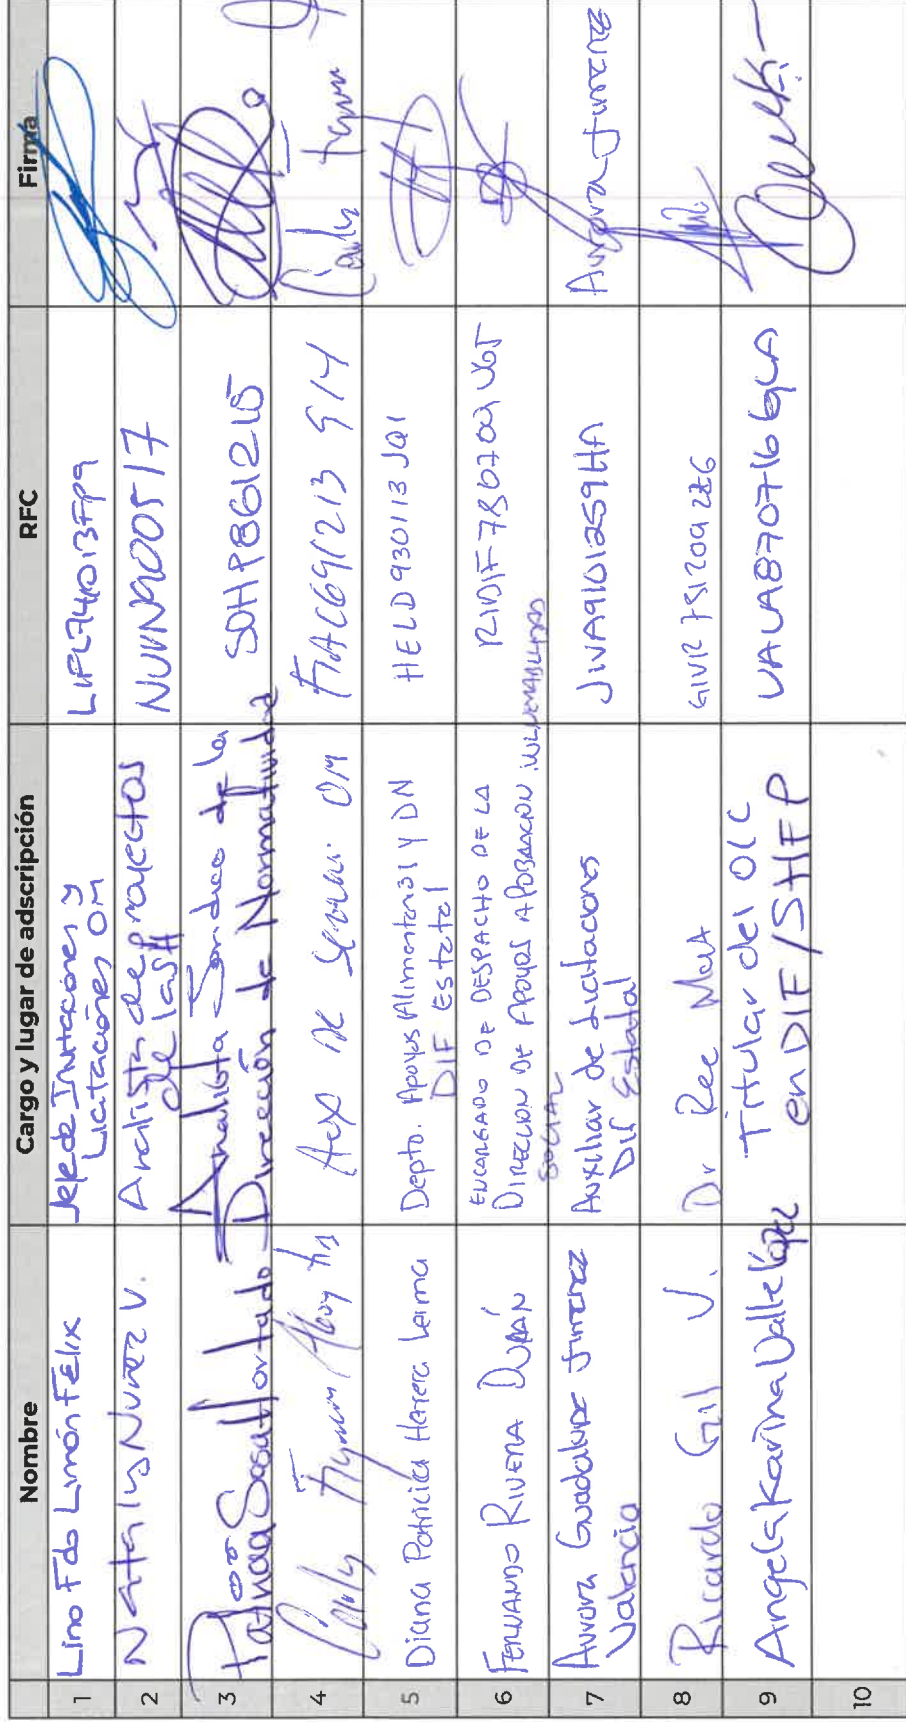 Nombre Cargo y lugar de adscripción RFC Firma
1 Lino Fdo Limón Félix Jefe de Invitaciones y
Licitaciones OM LIFL741013FP9
2 Nataly Nuñez V. Analista de proyectos
de la SH NUVN900517
3 Patricia Sosa Hurtado Analista Jurídico de la
Dirección de Normatividad SOHP861215
4 Aux de OM
5 Diana Patricia Herrera Lerma Depto. Apoyos Alimentarios y DN
DIF Estatal HELD930113JQ1
6 Fernando Rivera Durán ENCARGADO DE DESPACHO DE LA
DIRECCION DE APOYOS A POBLACION VULNERABILIDAD
SOCIAL
7 Aurora Guadalupe Jimenez
Valencia Auxiliar de Licitaciones
DIF Estatal JIVA9101259HA Aurora Jimenez
8 Ricardo Gil V. Dr Rec Mat GIVR751209
9 Angela Karina Valle López Titular del OIC
en DIF/SHFP VALA870716
10